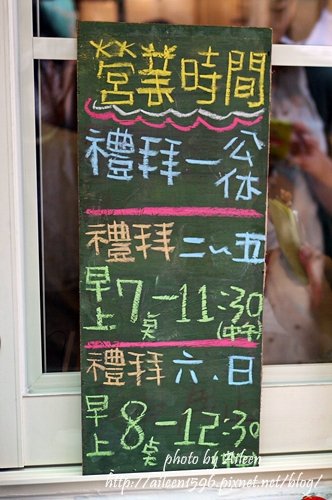 營業時間
禮拜一 公休
禮拜二～五
早上7點-11:30
(中午)
禮拜六.日
早上8點-12:30
photo by Aileen
http://aileen1596.pixnet.net/blog/